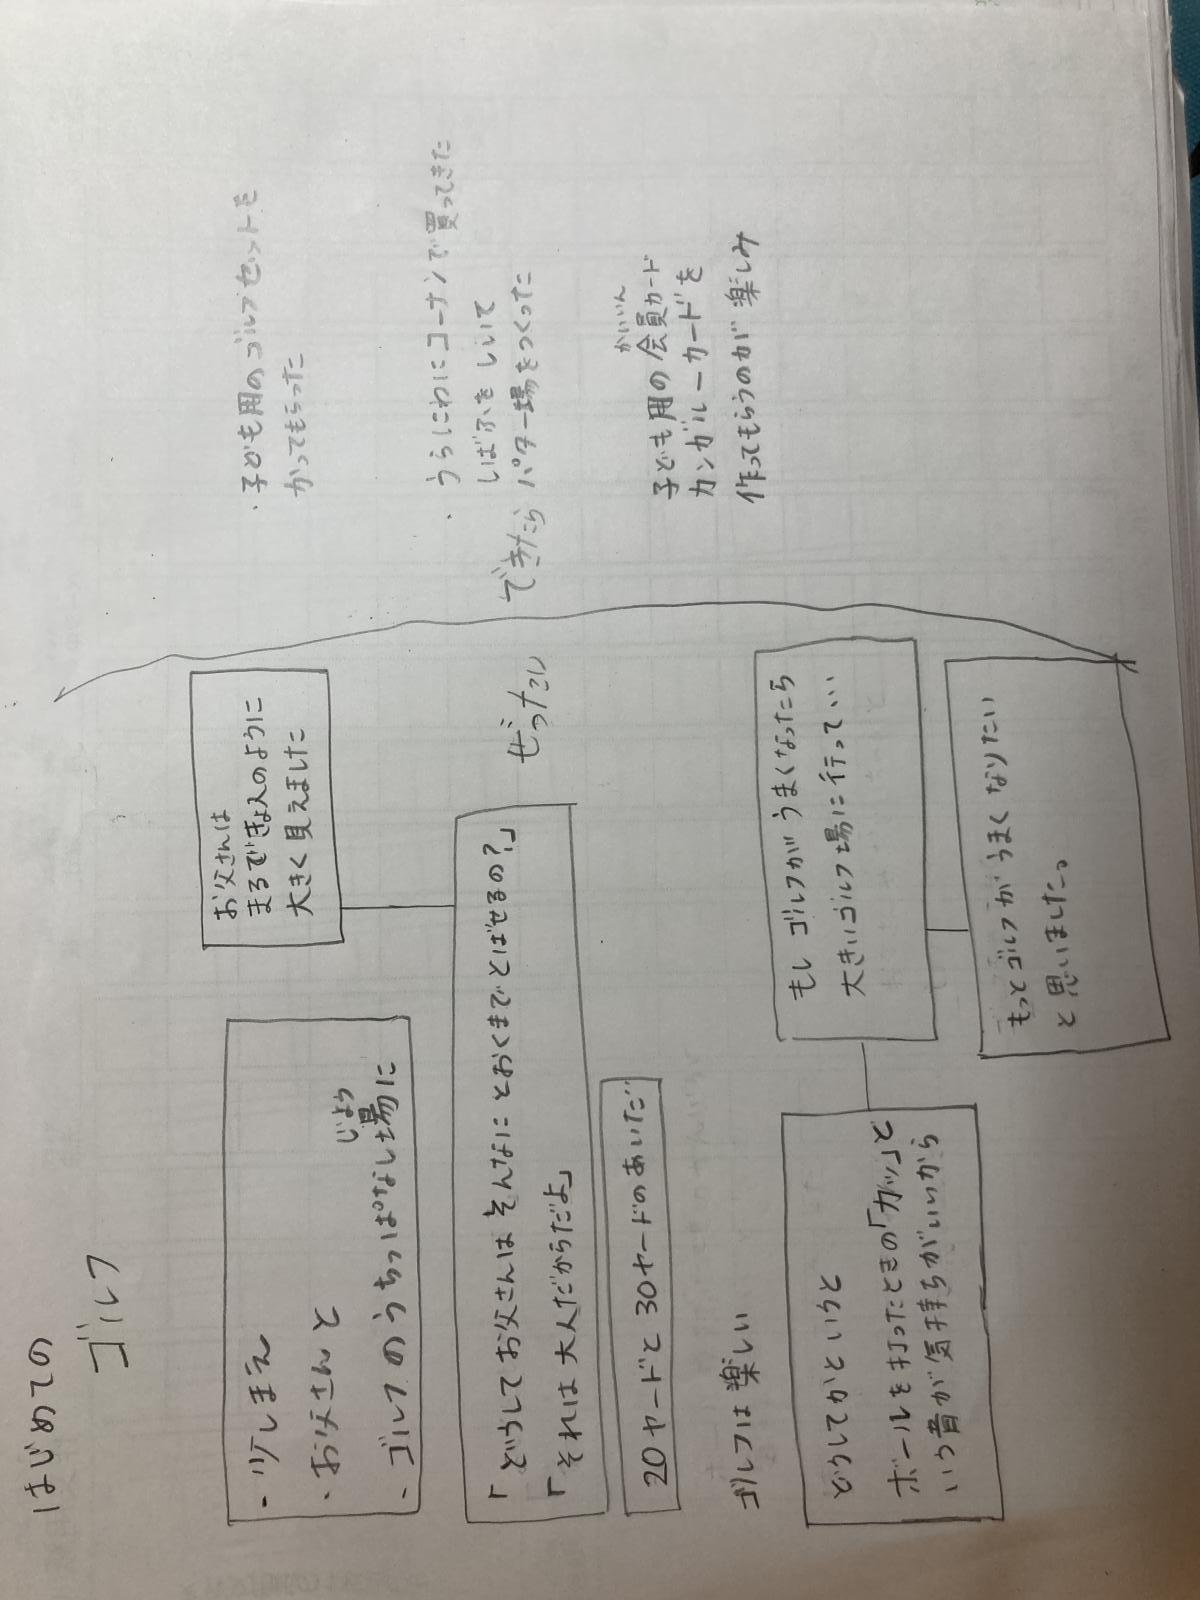 はじめての
ゴルフ
・少しまえ
・お父さんと
・ゴルフのうちっぱなし場に
じょう
お父さんは
まるできょ人のように
大きく見えました
「どうしてお父さんはそんなにとおくまでとばせるの？」
「それは大人だからだよ」
ぜったい
20ヤードと30ヤードのあいだ
ゴルフは楽しい
どうしてかというと
ボールを打ったときの「カッ」と
いう音が気持ちがいいから
もしゴルフがうまくなったら
大きいゴルフ場に行って...
もっとゴルフがうまくなりたい
と思いました。
・子ども用のゴルフセットを
かってもらった
・うらにわにコーナンで買ってきた
しばふをしいて
できたらパター場をつくった
かいいん
子ども用の会員カード
カンガルーカードを
作ってもらうのが楽しみ